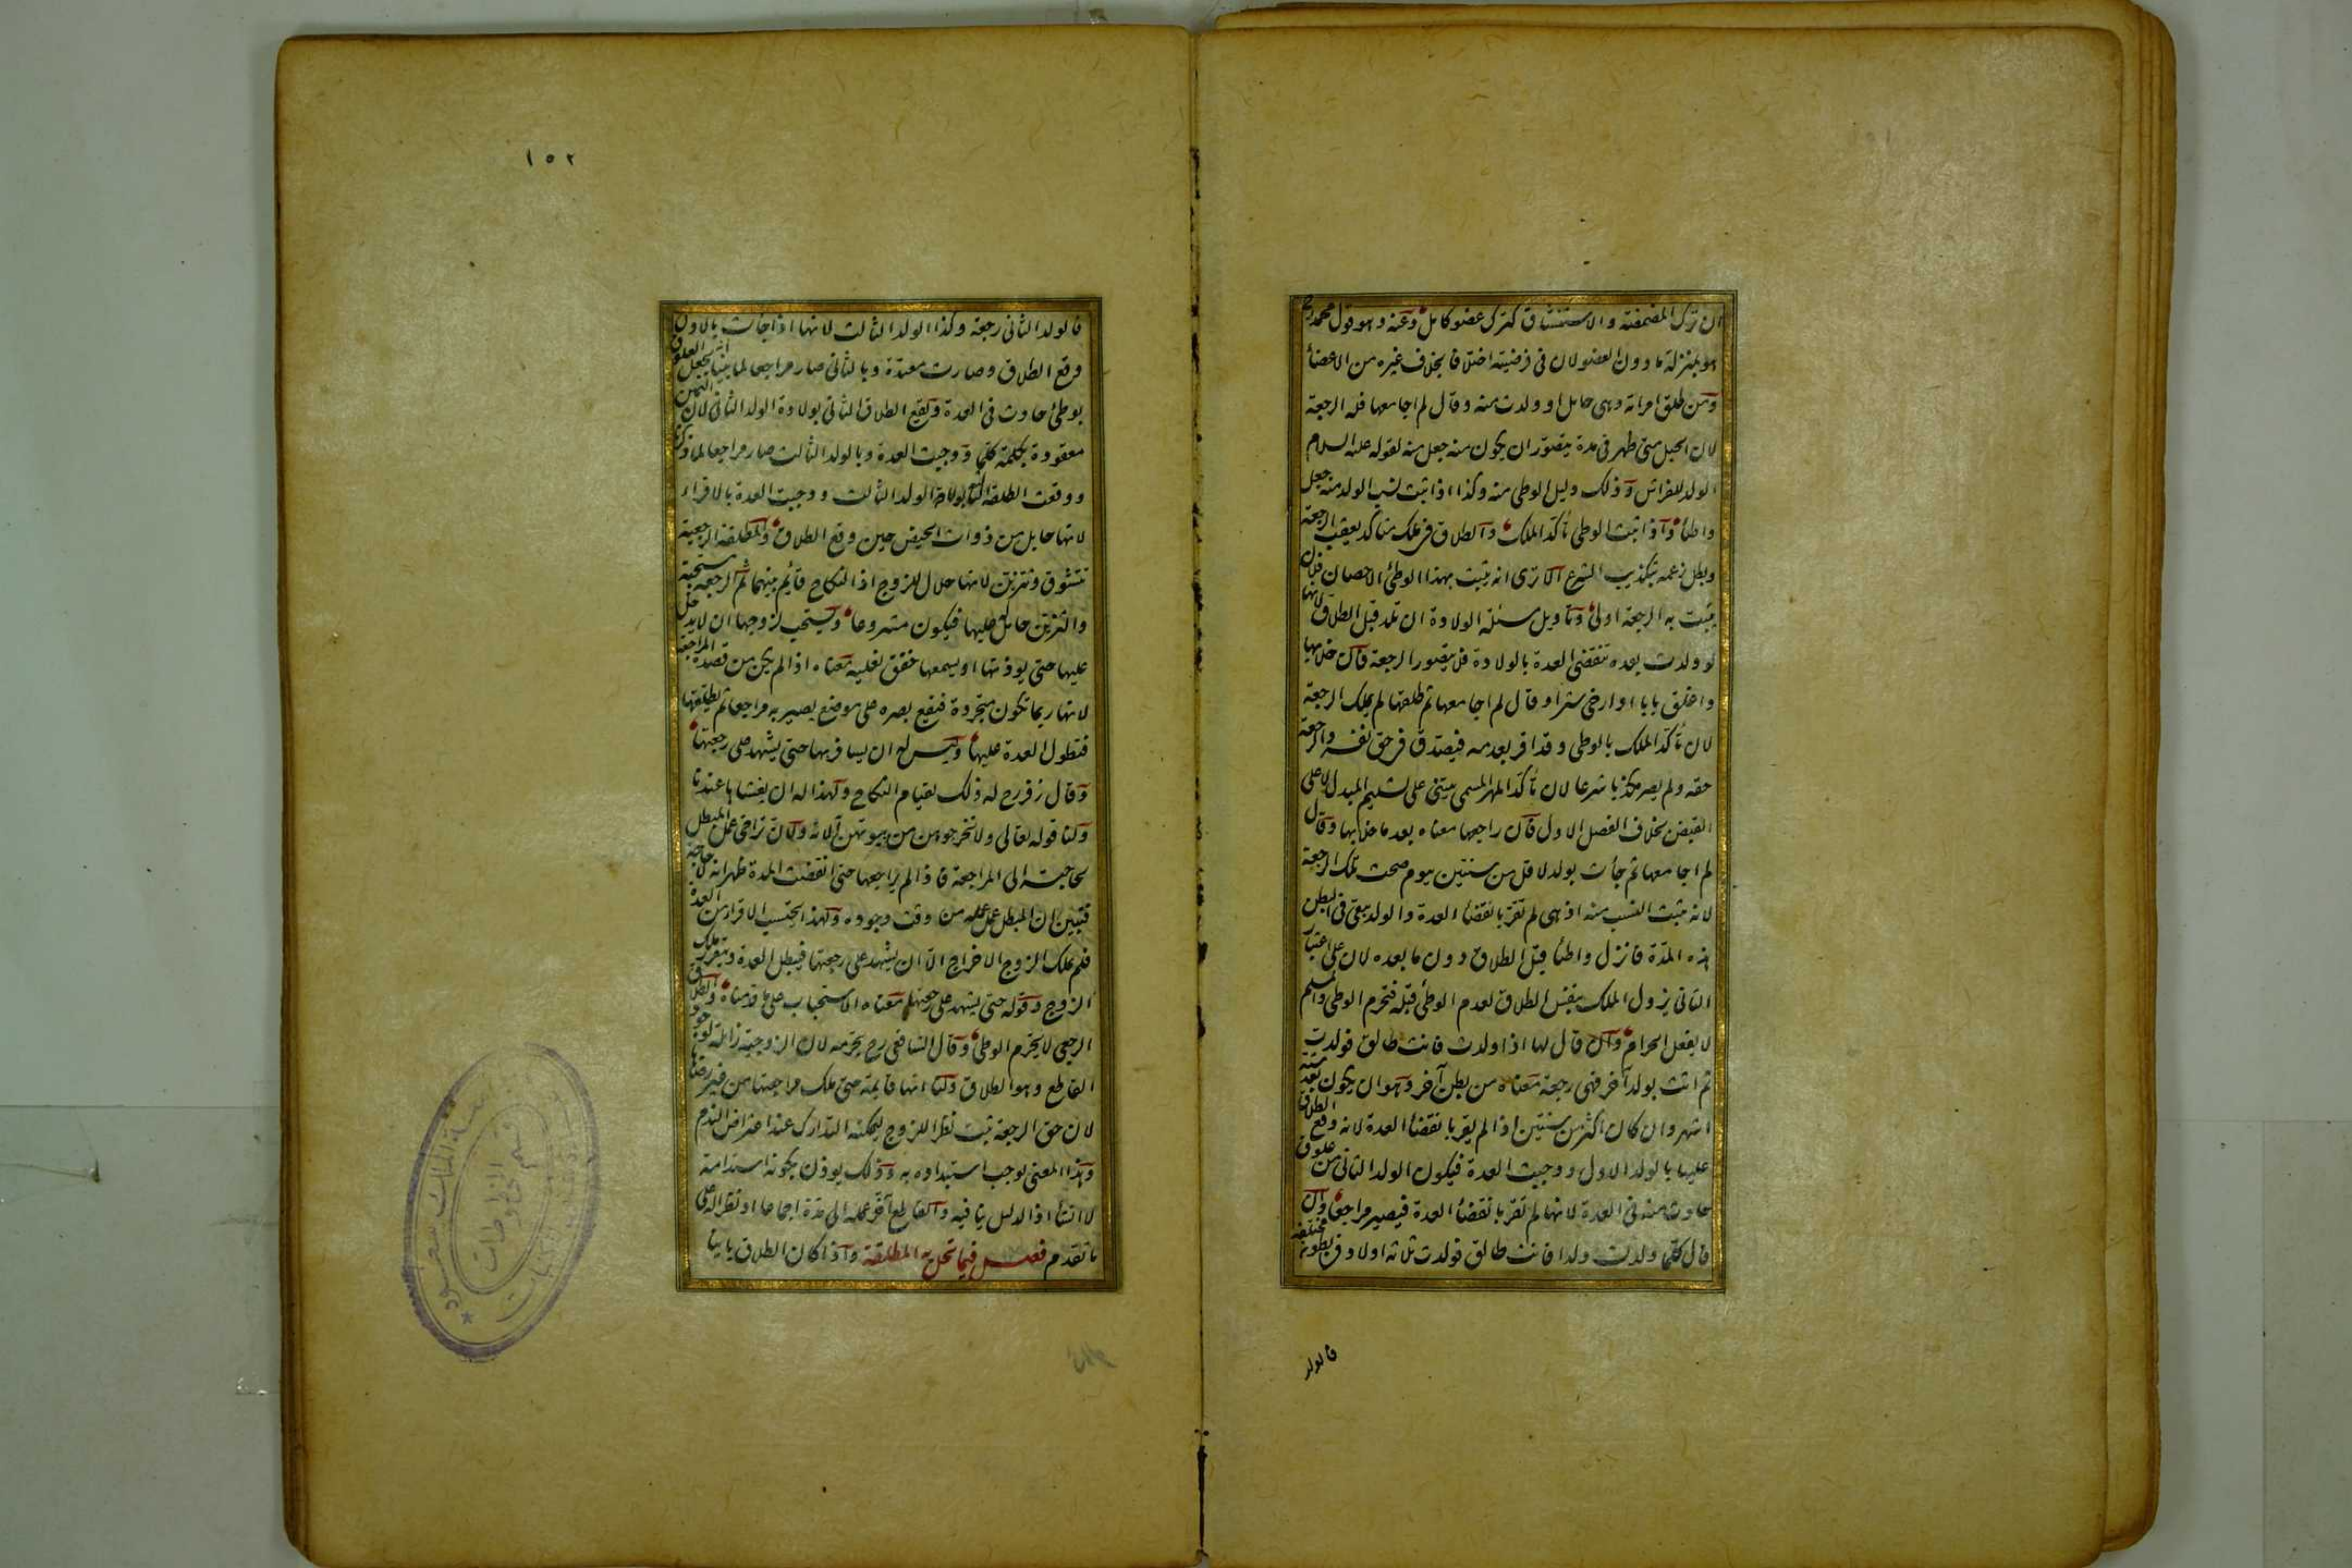 ان ترك المضمضة والاستنشاق كترك عضو كامل وعنه وهو قول محمد رح
هو بمنزلة ما دون العضو لان فى فرضيته اختلافا بخلاف غيره من الاعضاء
ومن طلق امراته وهى حامل او ولدت منه وقال لم اجامعها فله الرجعة
لان الحبل متى ظهر فى مدة يتصور ان يكون منه جعل منه لقوله عليه السلام
الولد للفراش وذلك دليل الوطى منه وكذا اذا ثبت نسب الولد منه جعل
واطئا واذا ثبت الوطى تأكد الملك والطلاق فى ملك متاكد يعقب الرجعة
ويبطل زعمه بتكذيب الشرع الا ترى انه يثبت بهذا الوطئ الاحصان فلان
يثبت به الرجعة اولى وتاويل مسئلة الولادة ان تلد قبل الطلاق لانها
لو ولدت بعده تنقضى العدة بالولادة فل يتصور الرجعة فان خلا بها
واغلق بابا او ارخى سترا وقال لم اجامعها ثم طلقها لم يملك الرجعة
لان تأكد الملك بالوطى وقد اقر بعدمه فيصدق فى حق نفسه والرجعة
حقه ولم يصر مكذبا شرعا لان تأكد المهر المسمى يبتنى على تسليم المبدل لا على
القبض بخلاف الفصل الاول فان راجعها معناه بعد ما خلا بها وقال
لم اجامعها ثم جأت بولد لاقل من سنتين بيوم صحت تلك الرجعة
لانه يثبت النسب منه اذ هى لم تقر بانقضاء العدة والولد يبقى فى البطن
هذه المدة فانزل واطئا قبل الطلاق دون ما بعده لان على اعتبار
الثانى يزول الملك بنفس الطلاق لعدم الوطئ قبله فتحرم الوطى والمسلم
لا يفعل الحرام وان قال لها اذا ولدت فانت طالق فولدت
ثم اتت بولد آخر فهى رجعة معناه من بطن آخر وهو ان يكون بعد ستة
اشهر وان كان اكثر من سنتين اذا لم يقر بانقضاء العدة لانه وقع الطلاق
عليها بالولد الاول ووجبت العدة فيكون الولد الثانى من علوق
حادث منه فى العدة لانها لم تقر بانقضاء العدة فيصير مراجعا وان
قال كلما ولدت ولدا فانت طالق فولدت ثلاثة اولاد فى بطون مختلفة
فالولد
١٥٢
فالولد الثانى رجعة وكذا الولد الثالث لانها اذا جأت بالاول
وقع الطلاق وصارت معتدة وبالثانى صار مراجعا لما بينا انه يجعل العلوق
بوطئ حادث فى العدة ويقع الطلاق الثانى بولادة الولد الثانى لان اليمين
معقودة بكلمة كلما ووجبت العدة وبالولد الثالث صار مراجعا لما ذكرنا
ووقعت الطلقة الثالثة بولادة الولد الثالث ووجبت العدة بالاقراء
لانها حايل من ذوات الحيض حين وقع الطلاق والمطلقة الرجعية
تتشوق وتتزين لانها حلال للزوج اذ النكاح قائم بينهما ثم الرجعة مستحبة
والتزين حامل عليها فيكون مشروعا ويستحب لزوجها ان لا يدخل
عليها حتى يوذنها او يسمعها خفق نعليه معناه اذا لم يكن من قصده المراجعة
لانها ربما تكون متجردة فيقع بصره على موضع يصير به مراجعا ثم يطلقها
فتطول العدة عليها وليس له ان يسافر بها حتى يشهد على رجعتها
وقال زفر رح له ذلك لقيام النكاح ولهذا له ان يغشاها عندنا
ولنا قوله تعالى ولا تخرجوهن من بيوتهن الاية ولان تراخى عمل المبطل
لحاجته الى المراجعة فاذا لم يراجعها حتى انقضت المدة ظهر انه لا حاجة
فتبين ان المبطل عمل عمله من وقت وجوده ولهذا يحتسب الاقرار من العدة
فلم يملك الزوج الاخراج الا ان يشهد على رجعتها فيبطل العدة ويتقرر ملك
الزوج وقوله حتى يشهد على رجعتها معناه الاستحباب على ما قدمناه والطلاق
الرجعى لا يحرم الوطى وقال الشافعى رح يحرمه لان الزوجية زائلة لوجود
القاطع وهو الطلاق ولنا انها قايمة حتى ملك مراجعتها من غير رضاها
لان حق الرجعة ثبت نظرا للزوج ليمكنه التدارك عند اعتراض الندم
وهذا المعنى يوجب استبداده به وذلك يوذن بكونه استدامة
لا انشاء اذ الدليل ينافيه والقاطع آخر عمله الى مدة اجماعا او نظرا له على
ما تقدم فصل فيما تحل به المطلقة واذا كان الطلاق باينا
قسم المخطوطات